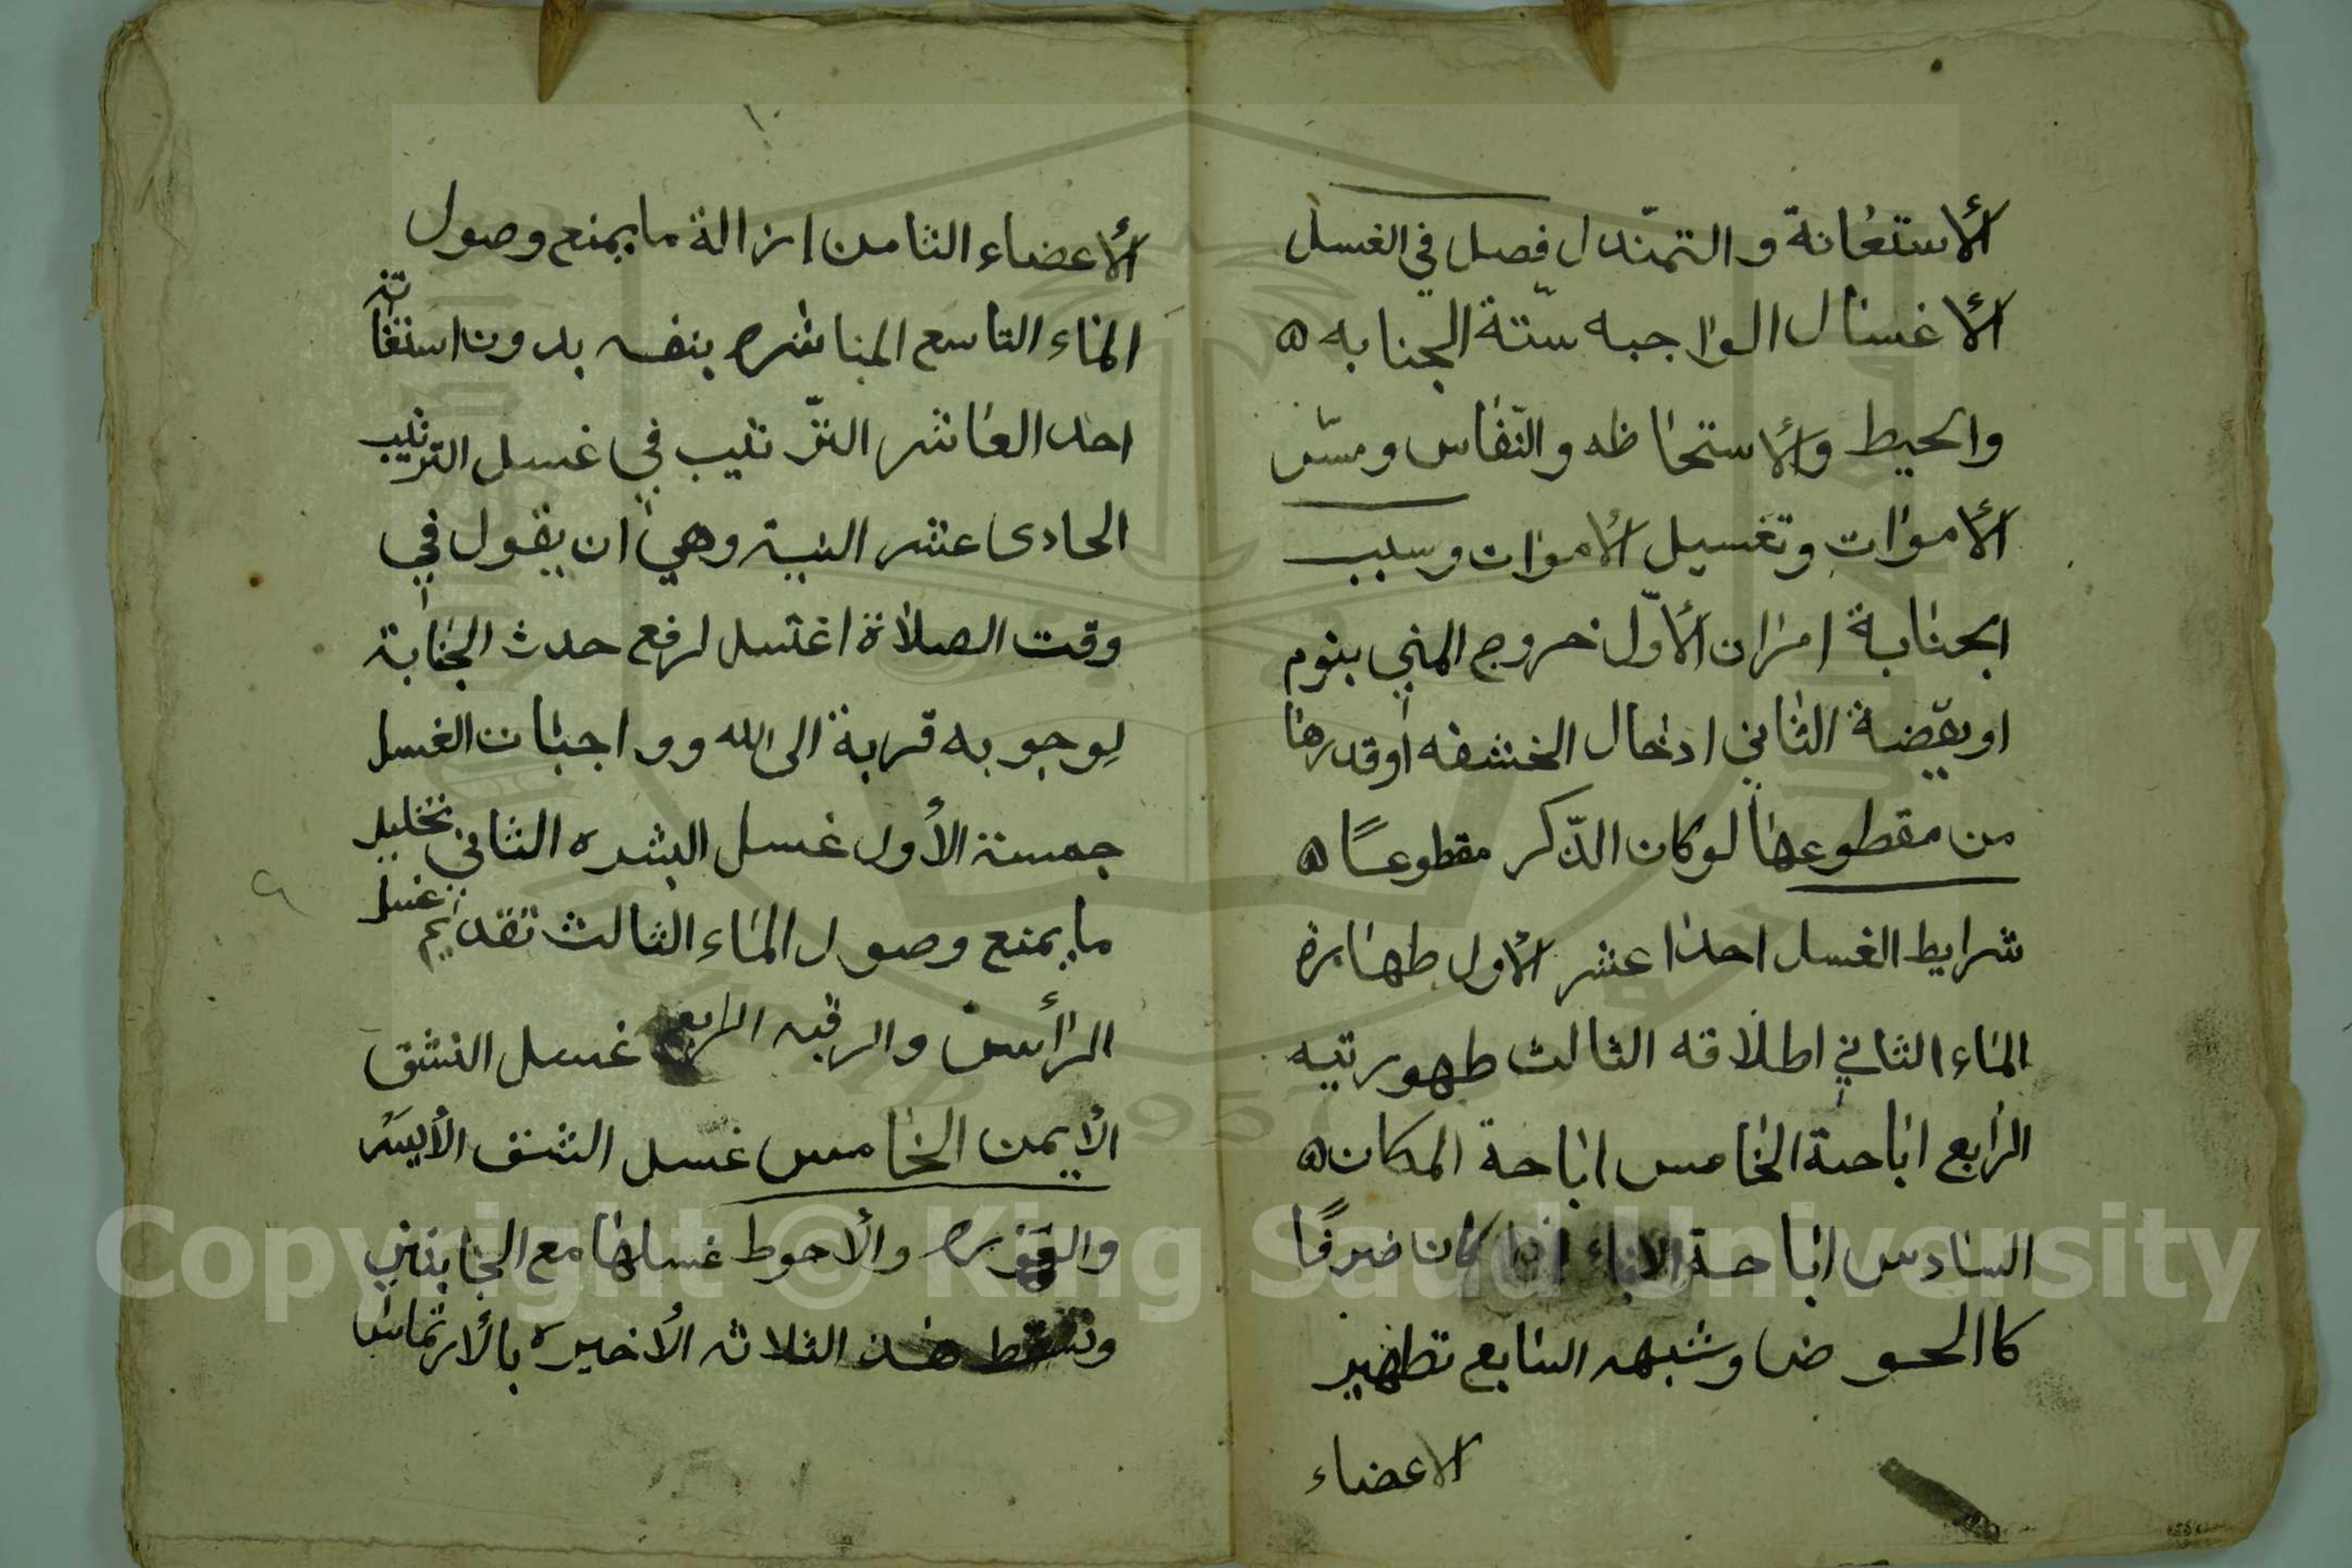 الأستعانة والتمندل فصل في الغسل
الأغسال الواجبه ستة الجنابه ه
والحيط والأستحاظه والنفاس ومسّ
الأموات وتغسيل الأموات وسبب
الجنابة امران الأوّل خروج المني بنوم
او يقضة الثاني ادخال الحشفه او قدرها
من مقطوعها لوكان الذّكر مقطوعًا ه
شرايط الغسل احدا عشر الأول طهارة
الماء الثاني اطلاقه الثالث طهوريته
الرابع اباحة الخامس اباحة المكان ه
السادس اباحة الاناء اذا كان ضرفًا
كاالحوض وشبهه السابع تطهير
الاعضاء
١٠
الأعضاء الثامن ازالة ما يمنع وصول
الماء التاسع المباشره بنفسه بدون استعانة
احد العاشر الترتيب في غسل الترتيب
الحادى عشر النية وهي ان يقول في
وقت الصلاة اغتسل لرفع حدث الجنابة
لوجوبه قربة الى الله وواجبات الغسل
خمسة الأول غسل البشره الثاني تخليل
ما يمنع وصول الماء الثالث تقديم غسل
الرأس والرقبه الرابع غسل الشق
الأيمن الخامس غسل الشق الأيسر
والعوره والأحوط غسلها مع الجانبين
وتسقط هذه الثلاثه الأخيره بالأرتماس
Copyright © King Saud University
1957